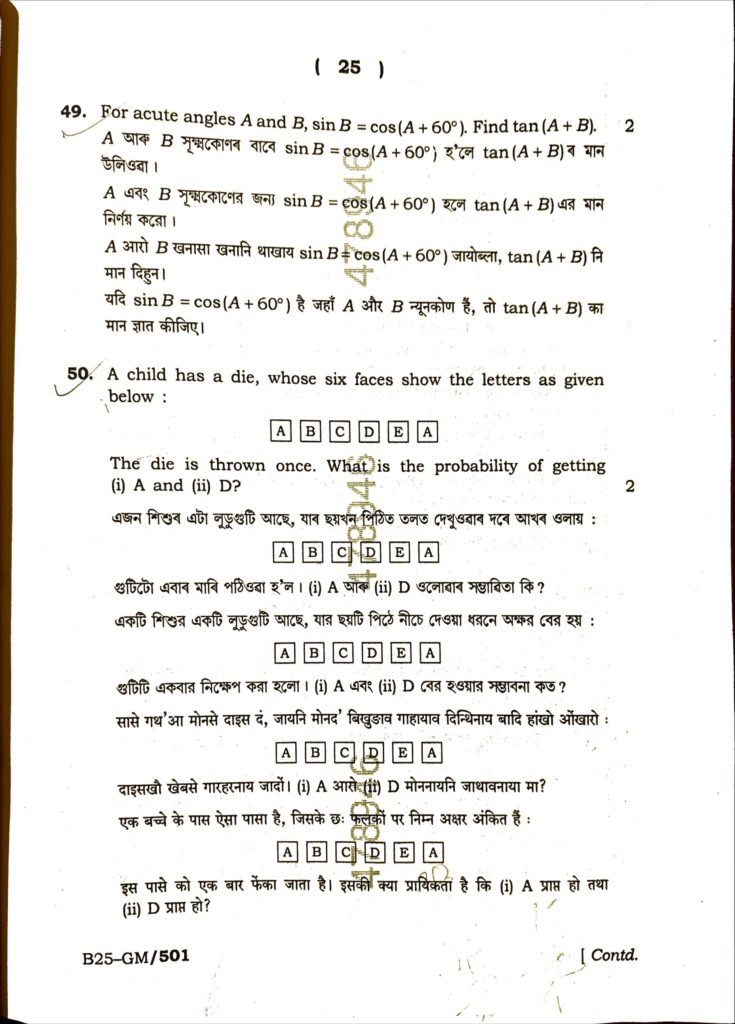 ( 25 )
49. For acute angles A and B, sin B = cos(A + 60°). Find tan(A + B). 2
A আৰু B সূক্ষ্মকোণৰ বাবে sin B = cos(A + 60°) হ'লে tan(A + B)ৰ মান
উলিওৱা।
A এবং B সূক্ষ্মকোণের জন্য sin B = cos(A + 60°) হলে tan(A + B)এর মান
নির্ণয় করো।
A आरो B खनासा खनानि थाखाय sin B = cos(A + 60°) जायोब्ला, tan(A + B) नि
मान दिहुन।
यदि sin B = cos(A + 60°) है जहाँ A और B न्यूनकोण हैं, तो tan(A + B) का
मान ज्ञात कीजिए।
50. A child has a die, whose six faces show the letters as given
below :
A B C D E A
The die is thrown once. What is the probability of getting
(i) A and (ii) D? 2
এজন শিশুৰ এটা লুডুগুটি আছে, যাৰ ছয়খন পিঠিত তলত দেখুওৱাৰ দৰে আখৰ ওলায় :
A B C D E A
গুটিটো এবাৰ মাৰি পঠিওৱা হ'ল। (i) A আৰু (ii) D ওলোৱাৰ সম্ভাৱিতা কি?
একটি শিশুর একটি লুডুগুটি আছে, যার ছয়টি পিঠে নীচে দেওয়া ধরনে অক্ষর বের হয় :
A B C D E A
গুটিটি একবার নিক্ষেপ করা হলো। (i) A এবং (ii) D বের হওয়ার সম্ভাবনা কত?
सासे गथ'आ मोनसे दाइस दं, जायनि मोनद' बिखुङाव गाहायाव दिन्थिनाय बादि हांखो ओंखारो :
A B C D E A
दाइसखौ खेबसे गारहरनाय जादों। (i) A आरो (ii) D मोननायनि जाथावनाया मा?
एक बच्चे के पास ऐसा पासा है, जिसके छः फलकों पर निम्न अक्षर अंकित हैं :
A B C D E A
इस पासे को एक बार फेंका जाता है। इसकी क्या प्रायिकता है कि (i) A प्राप्त हो तथा
(ii) D प्राप्त हो?
B25-GM/501 [ Contd.
478946
478946
478946